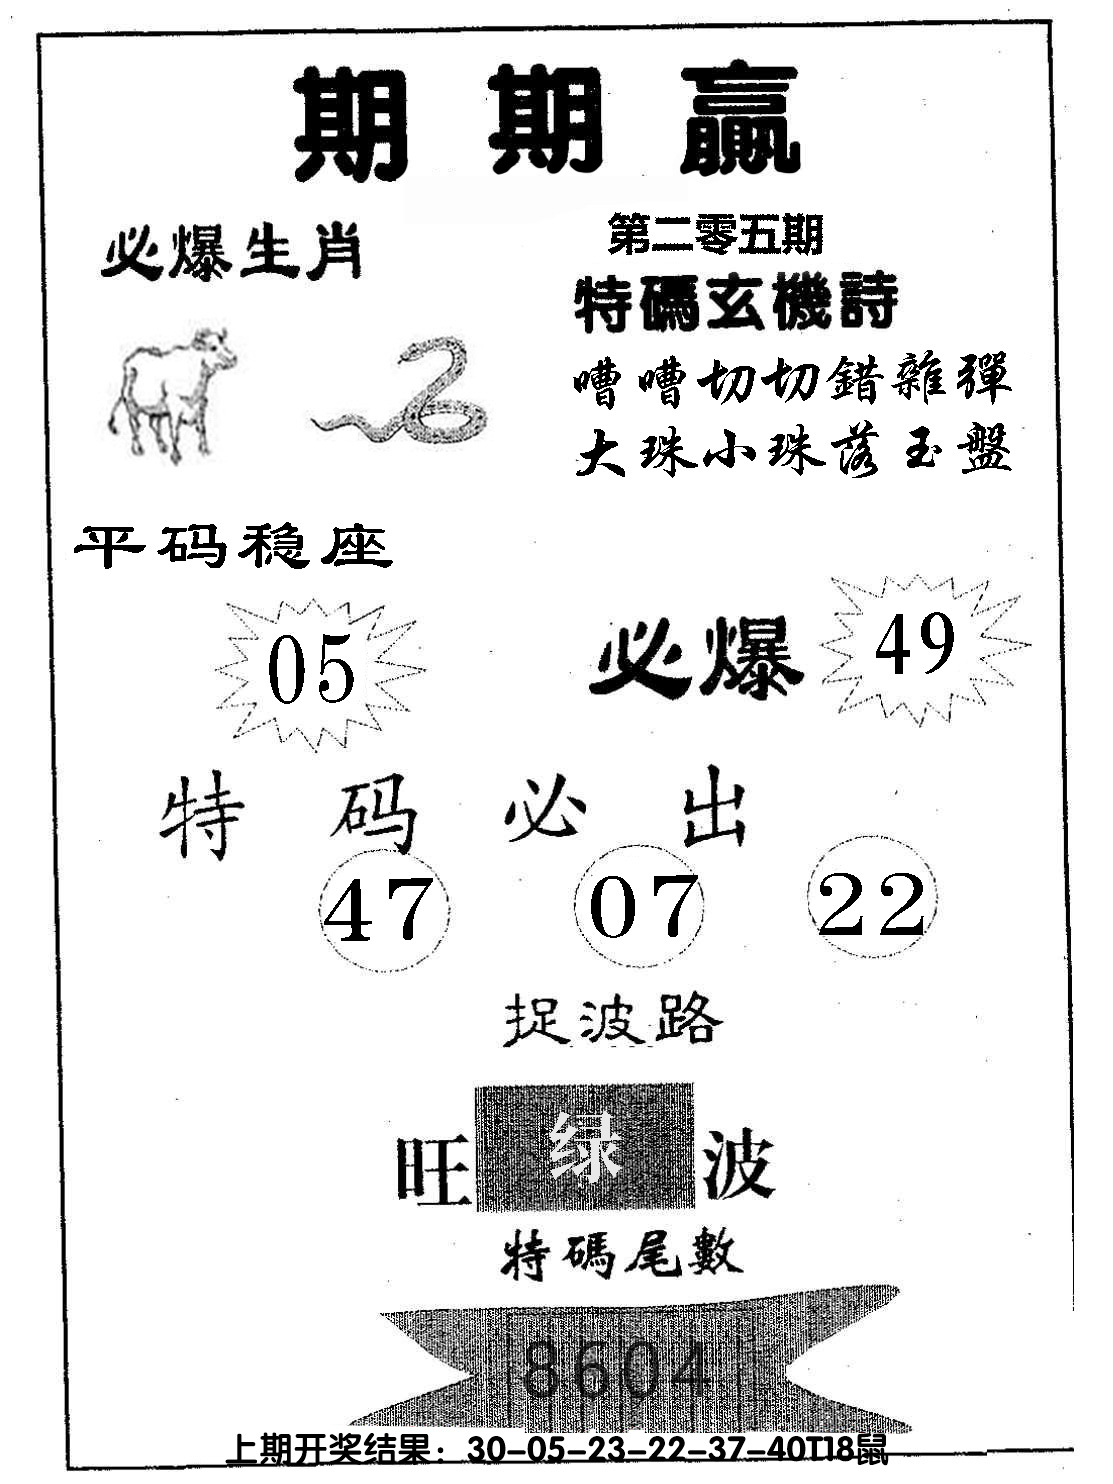 期期赢
必爆生肖
第二零五期
特碼玄機詩
嘈嘈切切錯雜彈
大珠小珠落玉盤
平码稳座
05
必爆
49
特码必出
47 07 22
捉波路
旺绿波
特碼尾數
8604
上期开奖结果：30-05-23-22-37-40T18鼠